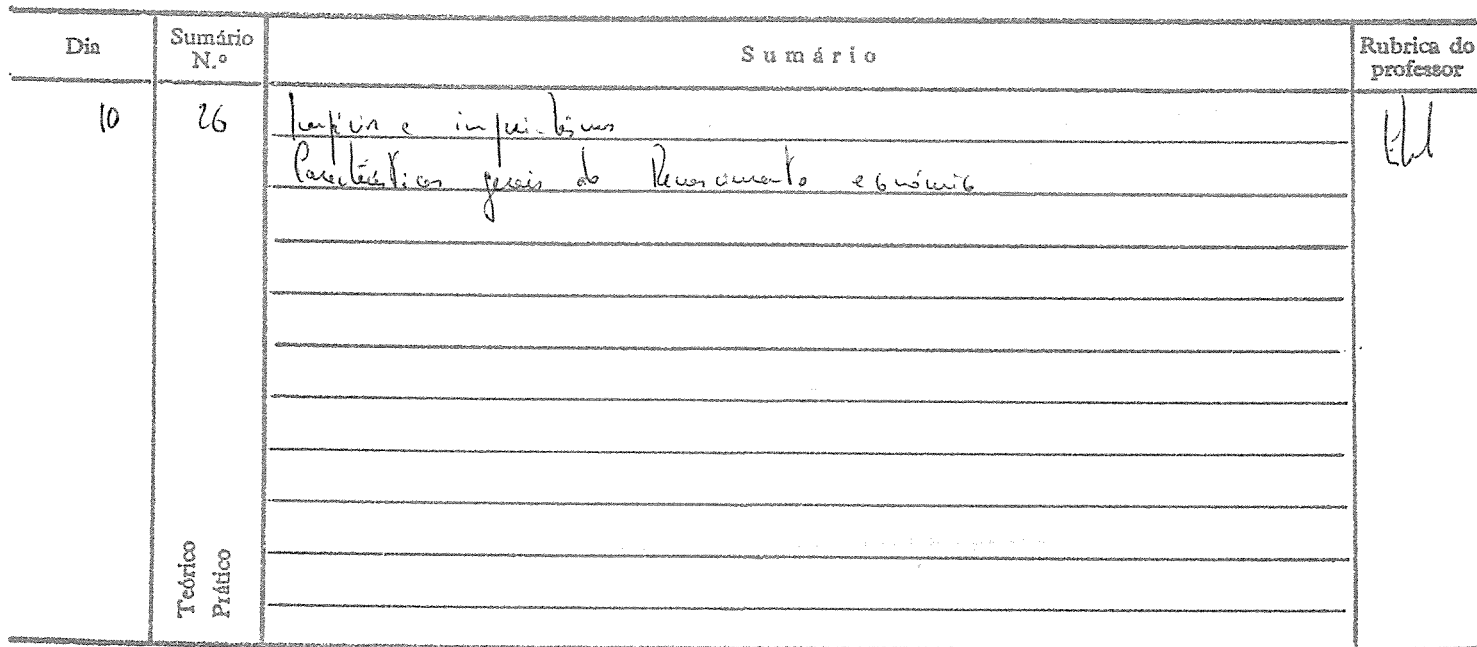 Dia
Sumário N.º
Sumário
Rubrica do professor
10
26
Impérios e imperialismos
Características gerais do Renascimento económico
Teórico
Prático